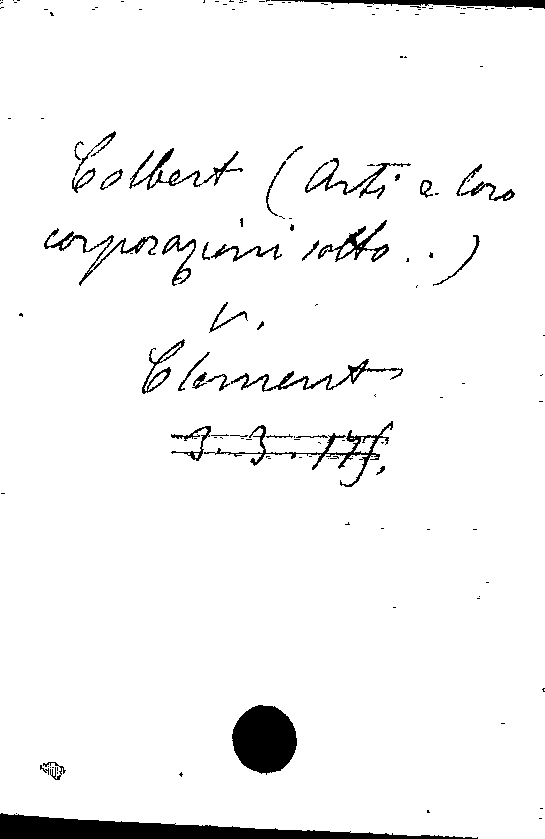 Colbert (Arti e loro
corporazioni sotto...)
v.
Clément
3.3.17f.